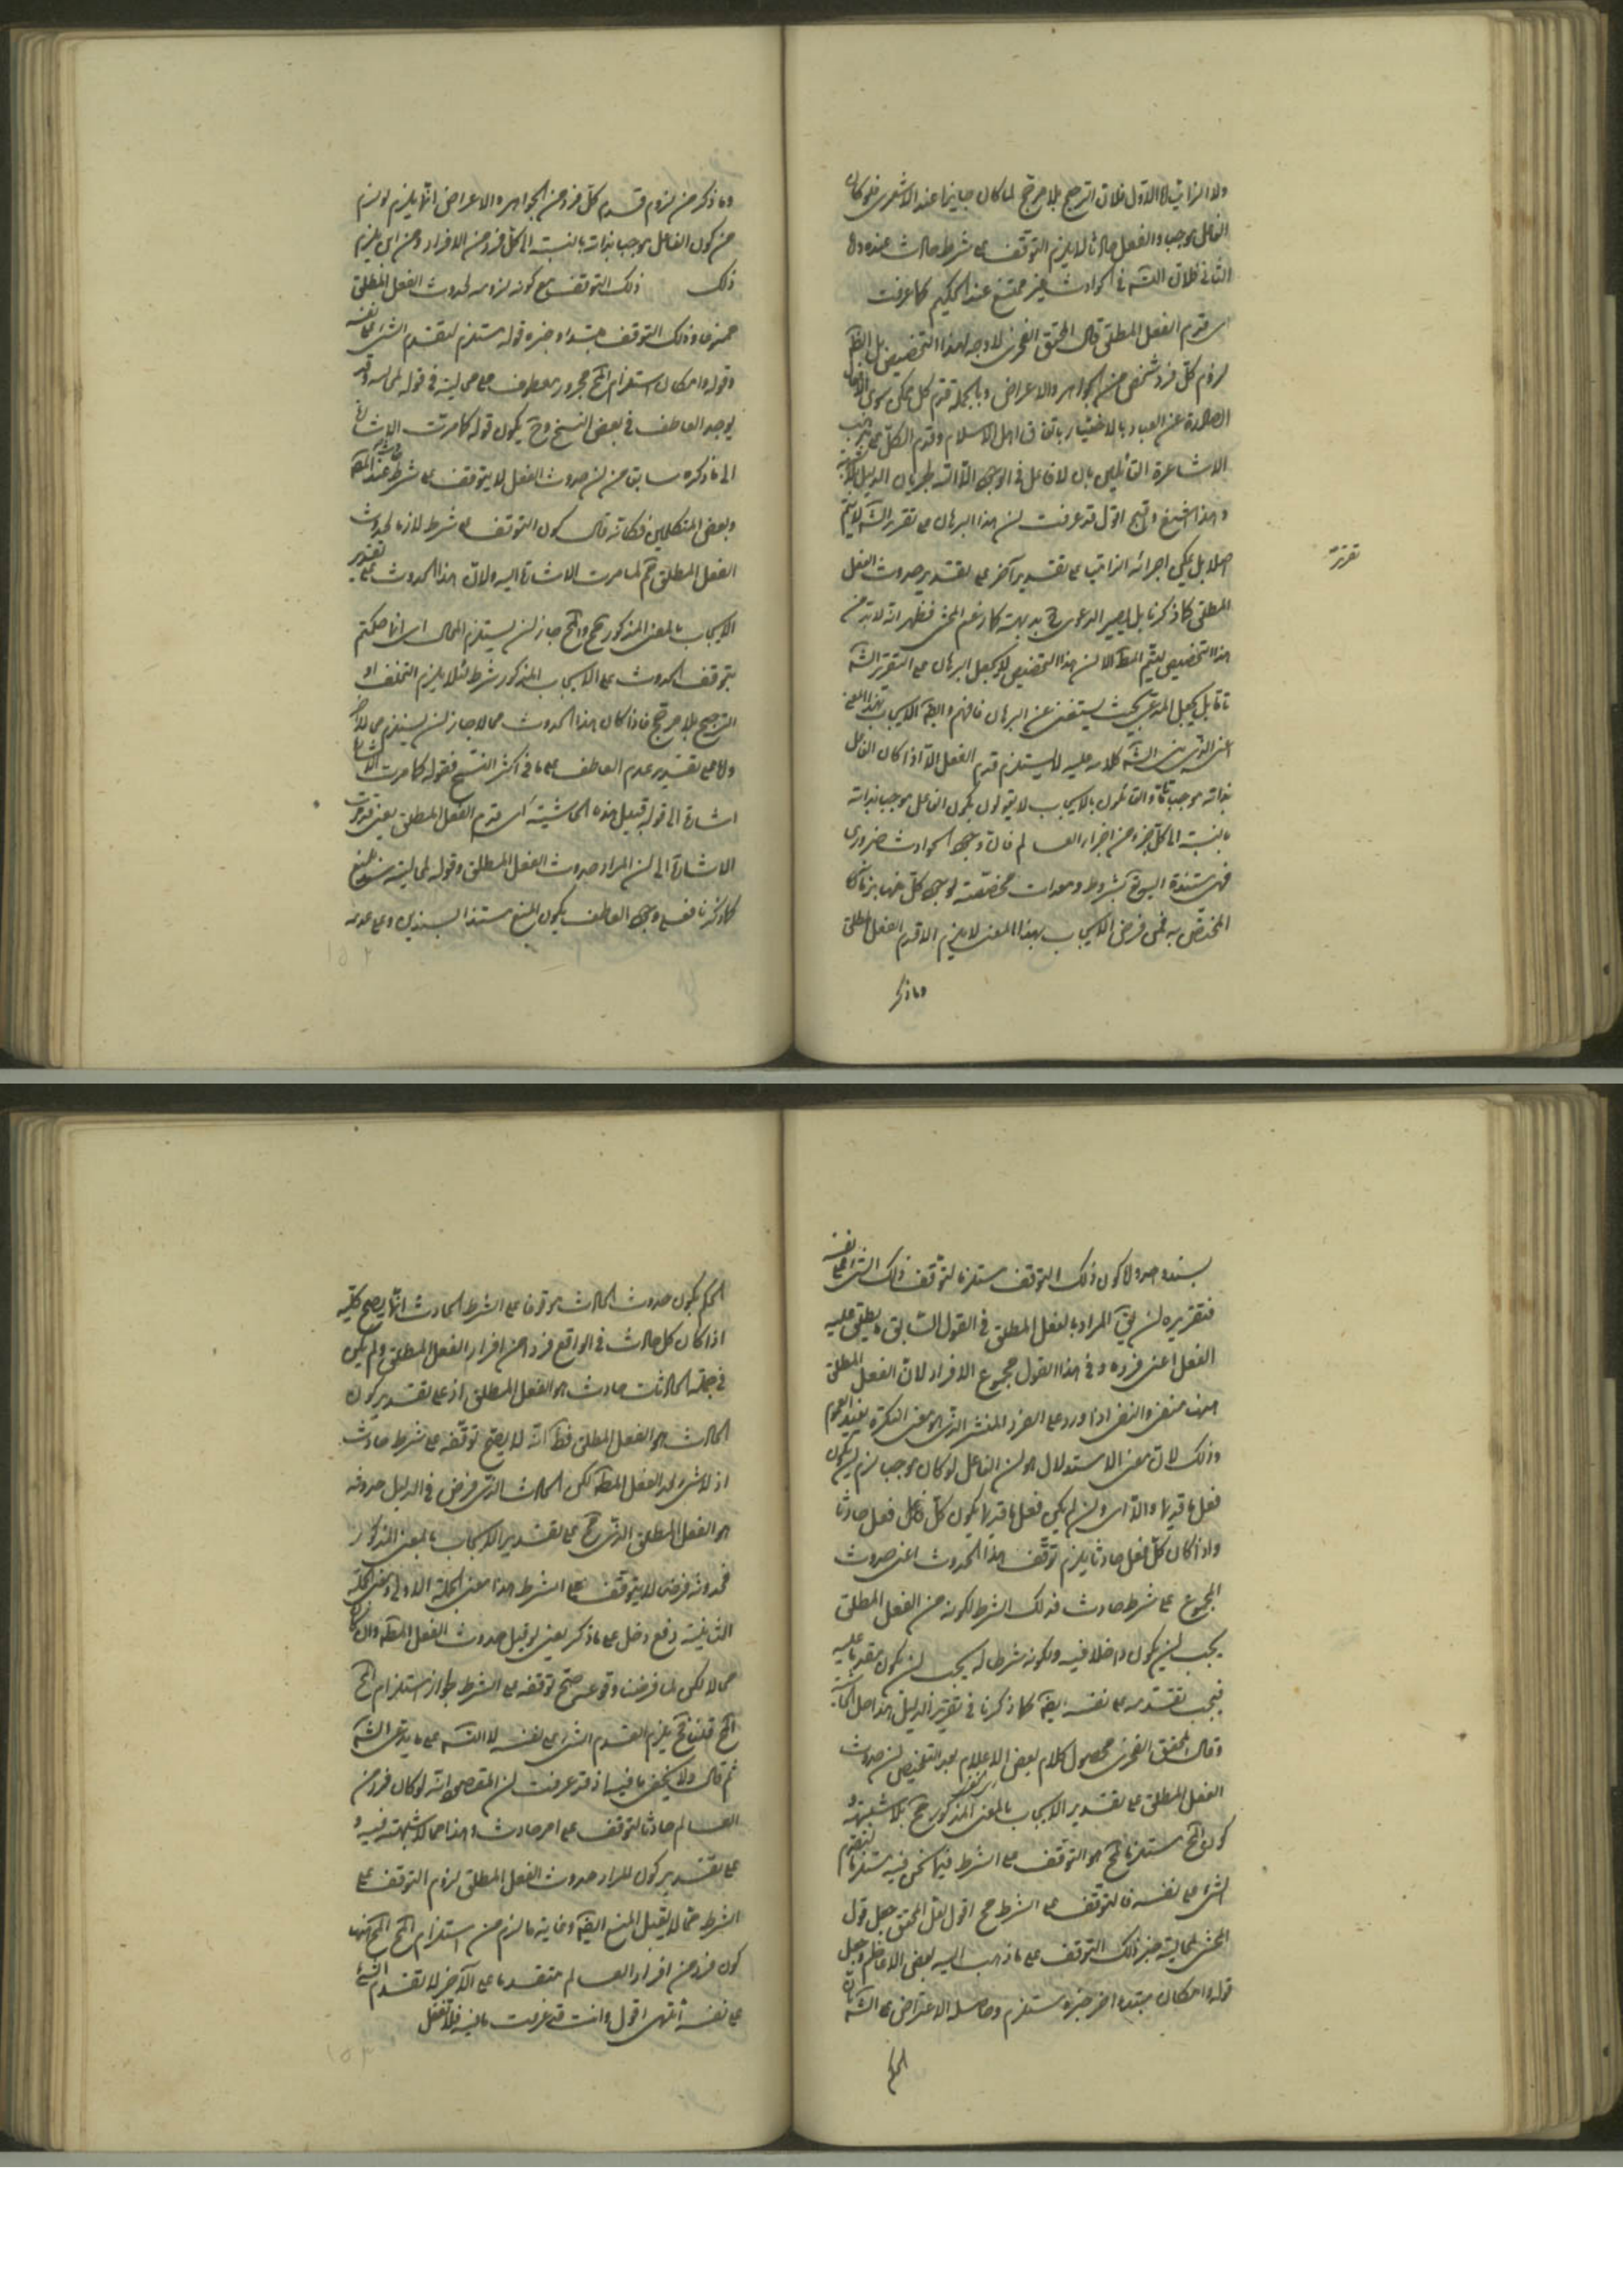 ولا الثاني اما الاول فلان الترجيح بلا مرجح لما كان جايزا عند الاشعرى فلو كان
الفاعل موجبا والفعل حادثا لا يلزم التوقف على شرط حادث عنده واما
الثانى فلان التسـ فى الحوادث غير ممتنع عند الحكيم كما عرفت
اى قدم الفعل المطلق قال المحقق الفخرى لا وجه لهذا التخصيص بل الظ
لزوم كل فرد شخص من الجواهر والاعراض وبالجملة قدم كل ممكن سوى الافعال
الصادرة عن العباد بالاختيار باتفاق اهل الاسلام وقدم الكل على مذهب
الاشاعرة القائلين بان لا فاعل فى الوجود الا الله لجريان الدليل
وهذا شنيع وقبيح اقول قد عرفت ان هذا البرهان على تقرير الشـ لا يتم
اصلا بل يمكن اجرائه على تقدير آخر على تقدير حدوث الفعل
تقرير
المطلق كما ذكرنا بل يصير الدعوى ح بديهية كما زعم المحشى فظهر انه لا بد من
هذا التخصيص ليتم المط الا ان هذا التخصيص لا يجعل البرهان على التقرير الشـ
تاما بل يجعل المدعى بحيث يستغنى عن البرهان فافهم وايضـ الايجاب بهذا المعنى
اعنى الذى بنى الشـ كلامه عليه لا يستلزم قدم الفعل الا اذا كان الفاعل
بذاته موجبا تاما والقائلون بالايجاب لا يقولون بكون الفاعل موجبا بذاته
بالنسبة الى كل جزء من اجزاء العالم فان وجود الحوادث ضرورى
فهى مستندة اليه بشروط ومعدات مخصصة لوجود كل منها بزمانها
المختص به فمن فرض الايجاب بهذا المعنى لا يلزم الا قدم الفعل المطلق
وما ذكر
وما ذكر من لزوم قدم كل فرد من الجواهر والاعراض انما يلزم لو لزم
من كون الفاعل موجبا بذاته بالنسبة الى كل فرد من الافراد ومن اين يلزم
ذلك ذلك التوقف مع كونه لزومه لحدوث الفعل المطلق
ممنوعا وذلك التوقف مبتداء وخبره قوله مستلزم لتقدم الشئ على نفسه
وقوله وامكان استلزام المح مجرور معطوف على محالية فى قوله لمحاليته وقد
يوجد العاطف فى بعض النسخ وح يكون قوله كما مرت الاشارة
الى ما ذكره سابقا من ان حدوث الفعل لا يتوقف على شرط حادث عند الحكماء
وبعض المتكلمين فكانه قال كون التوقف على شرط لازما لحدوث
الفعل المطلق مم لما مرت الاشارة اليه ولان هذا الحدوث على تقدير
الايجاب بالمعنى المذكور مح والمح جاز ان يستلزم المحال اى انما حكمتم
بتوقف الحدوث على الايجاب المذكور شرط لئلا يلزم التخلف او
الترجيح بلا مرجح فاذا كان هذا الحدوث محالا جاز ان يستلزم محالا آخر
واما على تقدير عدم العاطف على ما فى اكثر النسخ فقوله كما مرت الاشارة
اشارة الى قوله قبيل هذه الحاشية اى قدم الفعل المطلق يعنى قد مرت
الاشارة الى ان المراد حدوث الفعل المطلق وقوله لمحاليته سند للمنع
كما ذكرنا فعلى وجود العاطف يكون المنع مستندا بسندين وعلى عدمه
بسند واحد ولا كون ذلك التوقف مستلزما لتوقف ذلك الشئ على نفسه
فتقريره ان يق المراد بالفعل المطلق فى القول السابق ما يطلق عليه
الفعل اعنى فرده وفى هذا القول مجموع الافراد لان الفعل المطلق
النفى اذا ورد على الفرد المنتشر الذى هو معنى النكرة يفيد العموم
وذلك لان معنى الاستدلال هو ان الفاعل لو كان موجبا لزم ان يكون
فعل ما قديما والا اى وان لم يكن فعل ما قديما يكون كل فعل حادثا
واذا كان كل فعل حادثا يلزم توقف هذا الحدوث اعنى حدوث
المجموع على شرط حادث فذلك الشرط لكونه من الفعل المطلق
يجب ان يكون داخلا فيه ولكونه شرطا له يجب ان يكون مقدما عليه
فيجب تقدمه على نفسه ايضـ كما ذكرنا فى تقرير الدليل هذا
وقال المحقق الفخرى محصول كلام بعض الاعلام بعد التلخيص ان حدوث
الفعل المطلق على تقدير الايجاب بالمعنى المذكور مح بلا شبهة و
كون المح مستلزما لمح هو التوقف على الشرط فيما نحن فيه مستلزما لتقدم
الشئ على نفسه فالتوقف على الشرط مح اقول نقل المحقق جعل قول
المحشى لمحاليته خبر ذلك التوقف على ما ذهب اليه بعض الاعاظم وجعل
قوله وامكان مبتداء آخر خبره مستلزم وحاصله الاعتراض على الشـ بان
الحكم
الحكم بكون حدوث الحادث موقوفا على الشرط الحادث انما يصح كلية
اذا كان كل حادث فى الواقع فردا من افراد الفعل المطلق ولم يكن
فى جملة الحادثات حادث هو الفعل المطلق اذ على تقدير كون
الحادث هو الفعل المطلق فظ انه لا يصح توقفه على شرط حادث
اذ لا شئ بعد الفعل المطـ لكن الحادث الذى فرض فى الدليل حدوثه
هو الفعل المطلق الذى مح على تقدير الايجاب بالمعنى المذكور
فحدوثه فرضى لا يتوقف على الشرط هذا معنى الجملة الاولى ومعنى الجملة
الثانية دفع دخل على ما ذكر يعنى لو قيل حدوث الفعل المطـ وان كان
محالا لكن لما فرض وقوعه صح توقفه على الشرط لجواز استلزام المح
المح قلنا فح يلزم تقدم الشئ على نفسه لا التسـ على ما يدعى الشـ
ثم قال ولا يخفى ما فيه اذ قد عرفت ان المقصود انه لو كان فرد من
العالم حادثا لتوقف على امر حادث وهذا مما لا شبهة فيه و
على تقدير كون المراد حدوث الفعل المطلق لزوم التوقف على
الشرط مما لا يقبل المنع ايضـ وغاية ما لزم من استلزام المح المح هنا
كون فرد من افراد العالم متقدما على الآخر لا تقدم الشئ
على نفسه انتهى اقول وانت قد عرفت ما فيه فلا تغفل